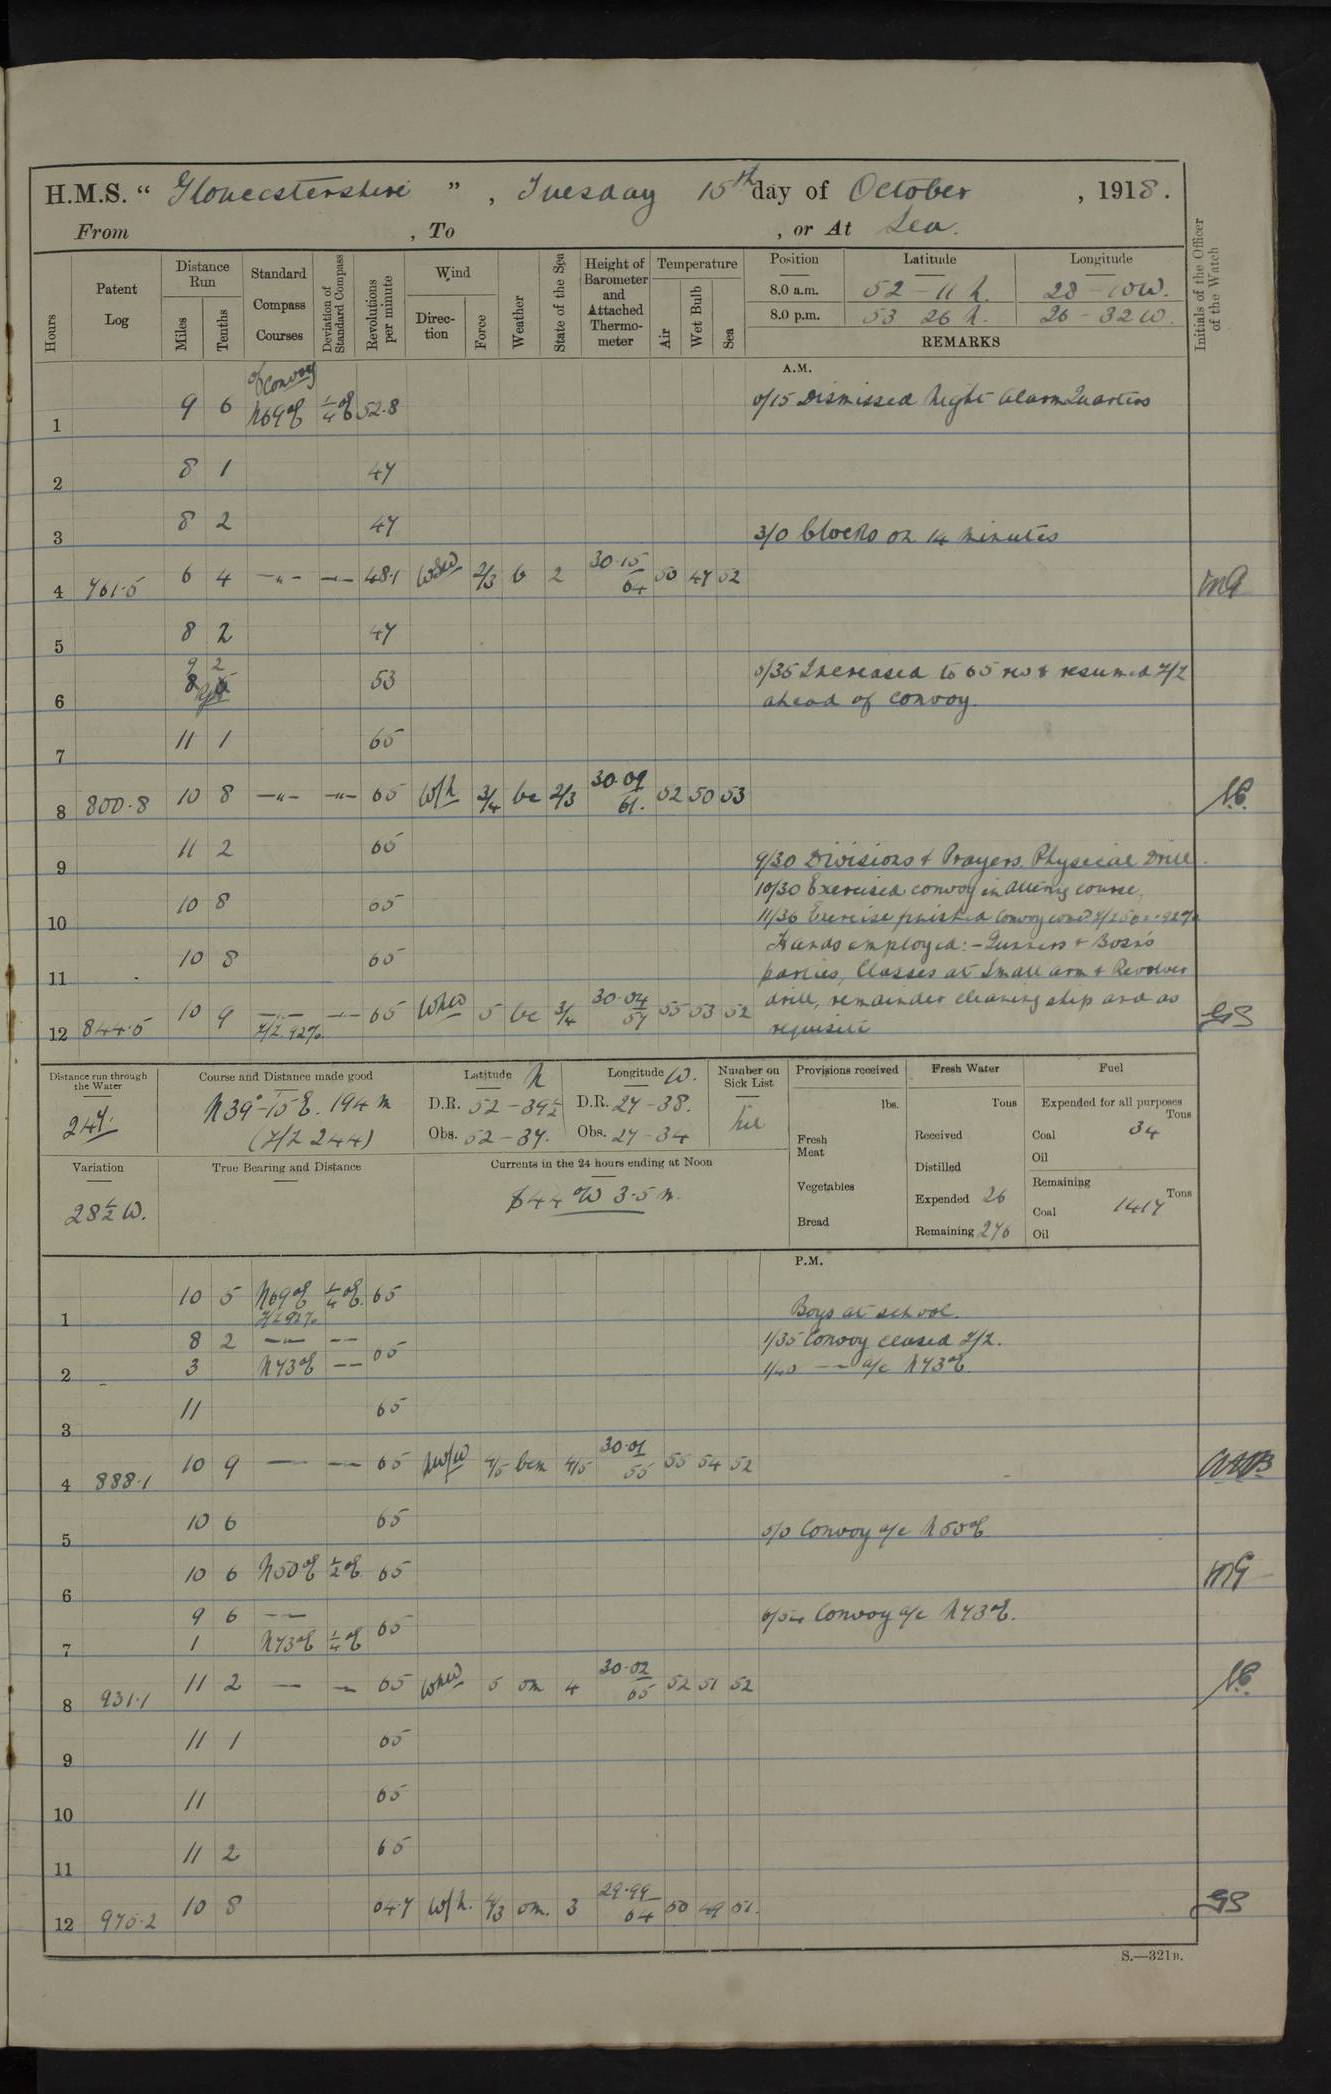 H.M.S. “ Gloucestershire ” , Tuesday 15th day of October , 1918.
From , To , or At Sea.
Hours Patent Log Distance Run Miles Tenths Standard Compass Courses Deviation of Standard Compass Revolutions per minute Wind Direction Force Weather State of the Sea Height of Barometer and Attached Thermometer Temperature Air Wet Bulb Sea Position Latitude Longitude Initials of the Officer of the Watch
8.0 a.m. 52 - 11 N. 28 - 10 W.
8.0 p.m. 53 26 N. 26 - 32 W.
REMARKS
A.M.
of Convoy
1 9 6 N69°E ¼°E 52.8 0/15 Dismissed Night Alarm Quarters
2 8 1 47
3 8 2 47 3/0 Clocks on 14 minutes
4 761.5 6 4 —"— —"— 48.1 WSW 2/3 b 2 30.15 64 50 47 52
5 8 2 47
6 9 2 53 5/35 Increased to 65 revs resumed Z/Z
ahead of convoy.
7 11 1 65
8 800.8 10 8 —"— —"— 65 W/N 3/4 bc 2/3 30.09 61. 52 50 53
9 11 2 65 9/30 Divisions & Prayers. Physical Drill.
10 10 8 65 10/30 Exercised convoy in altering course.
11/30 Exercise finished Convoy
11 10 8 65 Hands employed:- Gunners & Bosn's
parties, Classes at Small arm & Revolver
12 844.5 10 9 —"— —"— 65 WNW 5 bc 3/4 30.04 57 55 53 52 drill, remainder cleaning ship and as
Z/Z 92% requisite GS
Distance run through the Water Course and Distance made good Latitude N Longitude W. Number on Sick List Provisions received Fresh Water Fuel
247. N39°-15'E. 194 m D.R. 52 - 39½ D.R. 27 - 38. Nil lbs. Tons Expended for all purposes Tons
(Z/Z 244) Obs. 52 - 37. Obs. 27 - 34 Fresh Meat Received Coal 34
Oil
Variation True Bearing and Distance Currents in the 24 hours ending at Noon Distilled Remaining Tons
28½ W. S44°W 3.5 m. Vegetables Expended 26 Coal 1417
Bread Remaining 276 Oil
P.M.
1 10 5 N69°E ¼°E. 65 Boys at school.
Z/Z 92%
8 2 —"— —"— 1/35 Convoy ceased Z/Z.
2 3 N73°E —"— 65 1/40 —"— a/c N73°E.
3 11 65
4 888.1 10 9 —"— —"— 65 NW/W 4/5 bcm 4/5 30.01 55 55 54 52
5 10 6 65 5/0 Convoy a/c N50°E
6 10 6 N50°E ½°E. 65
9 6 —"— 6/54 Convoy a/c N73°E.
7 1 N73°E ¼°E 65
8 931.1 11 2 —"— —"— 65 WNW 5 om 4 30.02 65 52 51 52
9 11 1 65
10 11 65
11 11 2 65
12 975.2 10 8 64.7 W/N. 4/3 om. 3 29.99 64 50 49 51. GS
S.—321B.